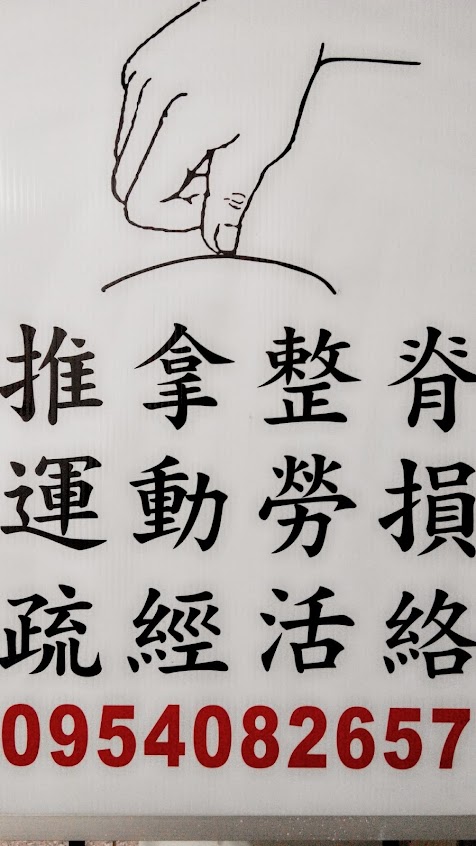 推拿整脊
運動勞損
疏經活絡
0954082657